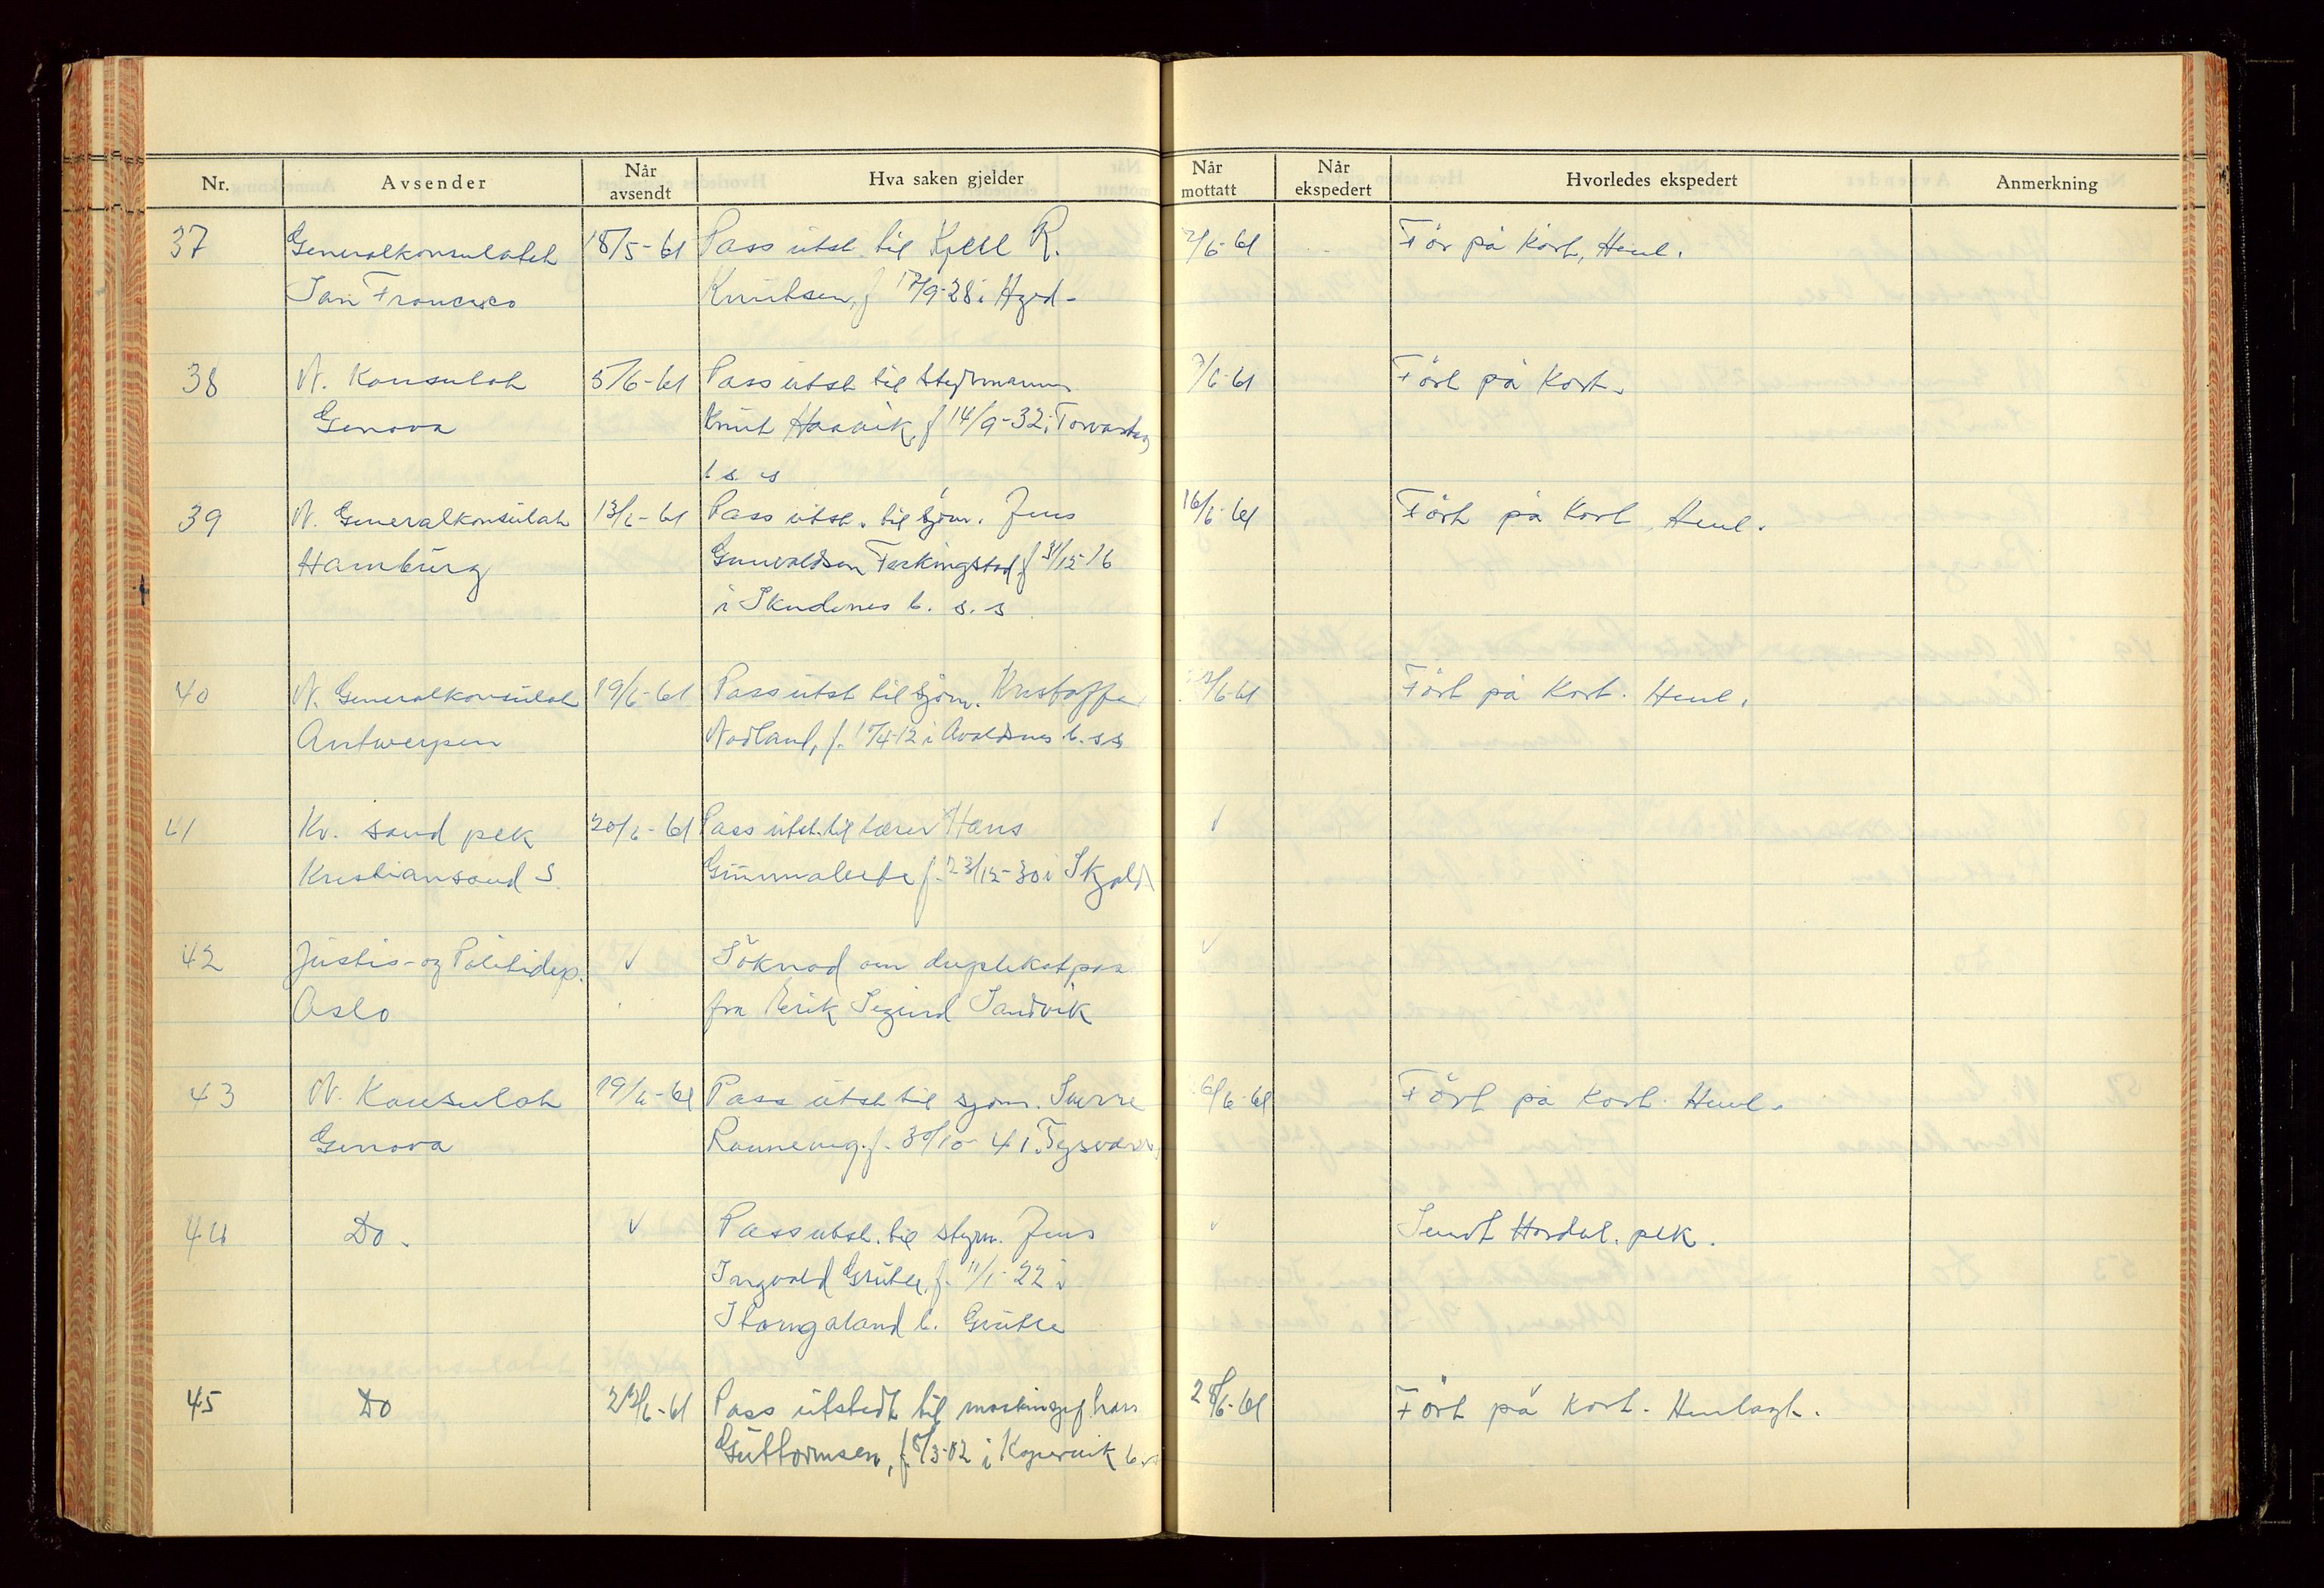 Nr. Avsender Når avsendt Hva saken gjelder Når mottatt Når ekspedert Hvorledes ekspedert Anmerkning
37 Generalkonsulatet 18/5-61 Pass utst. til Kjell R. 2/6-61 För på Kort, Henl.
San Francisco Knutsen, f 17/9-28 i Hgsd-
38 N. Konsulat 5/6-61 Pass utst til styrmann 7/6-61 Fört på Kort.
Genova Knut Haavik, f 14/9-32 i Torvastag
b s s
39 N. Generalkonsulat 13/6-61 Pass utst. til sjöm. Jens 16/6-61 Fört på Kort Henl.
Hamburg Gunvaldsen Ferkingstad f 31/12-16
i Skudenes b. s. s
40 N. Generalkonsulat 19/6-61 Pass utst til sjöm. Kristoffer /6-61 Fört på Kort. Henl.
Antwerpen Nodland, f. 17/4-12 i Avaldsnes b. s s
41 Kr. sand pck 20/6-61 Pass utst. til lærer Hans √
Kristiansand S. f. 23/12-30 i Skjold
42 Justis- og Politidep. √ Söknad om duplikatpas √
Oslo fra Erik Sigurd Sandvik
43 N. Konsulat 19/6-61 Pass utst til sjöm. Sverre /6-61 Fört på Kort. Henl.
Genova Rönnevig. f. 30/10-41 i Tysvær
44 Do. √ Pass utst. til styrm. Jens √ Sendt Hordal. pck.
Ingvald Grutle, f. 11/1-22 i
b. Grutle
45 Do 23/6-61 Pass utstedt til maskinsjef hans 28/6-61 Fört på kort. Henlagt.
Guttormsen, f. 8/3-02 i Kopervik b.